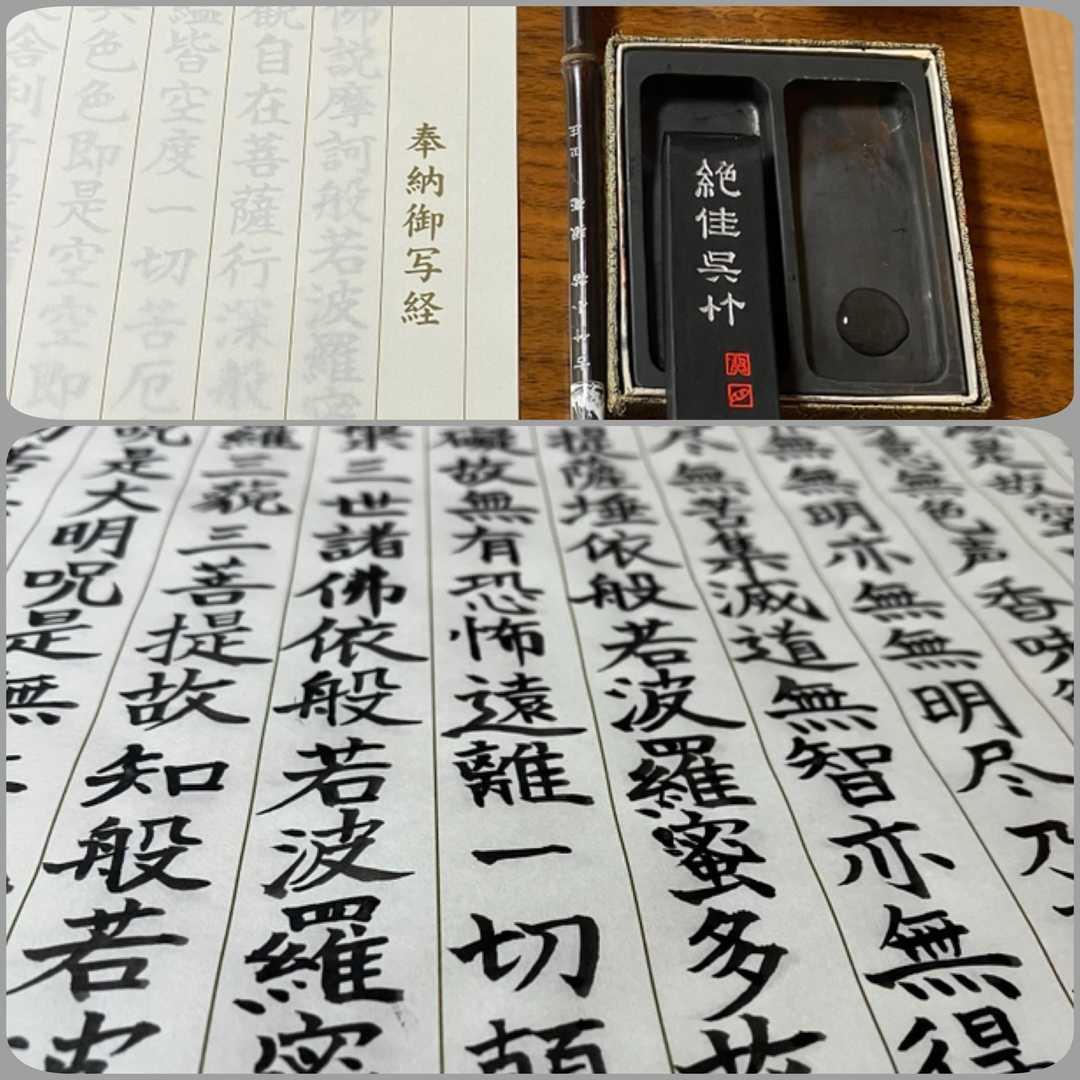 奉納御写経
佛説摩訶般若波羅
観自在菩薩行深般
皆空度一切苦厄
色色即是空空即
舎利子
絶佳呉竹
是故空
意無色声香味
無無明亦無無明尽乃
尽無苦集滅道無智亦無得
提薩埵依般若波羅蜜多故
礙故無有恐怖遠離一切顛
槃三世諸佛依般若波羅蜜
羅三藐三菩提故知般若波
呪是大明呪是無